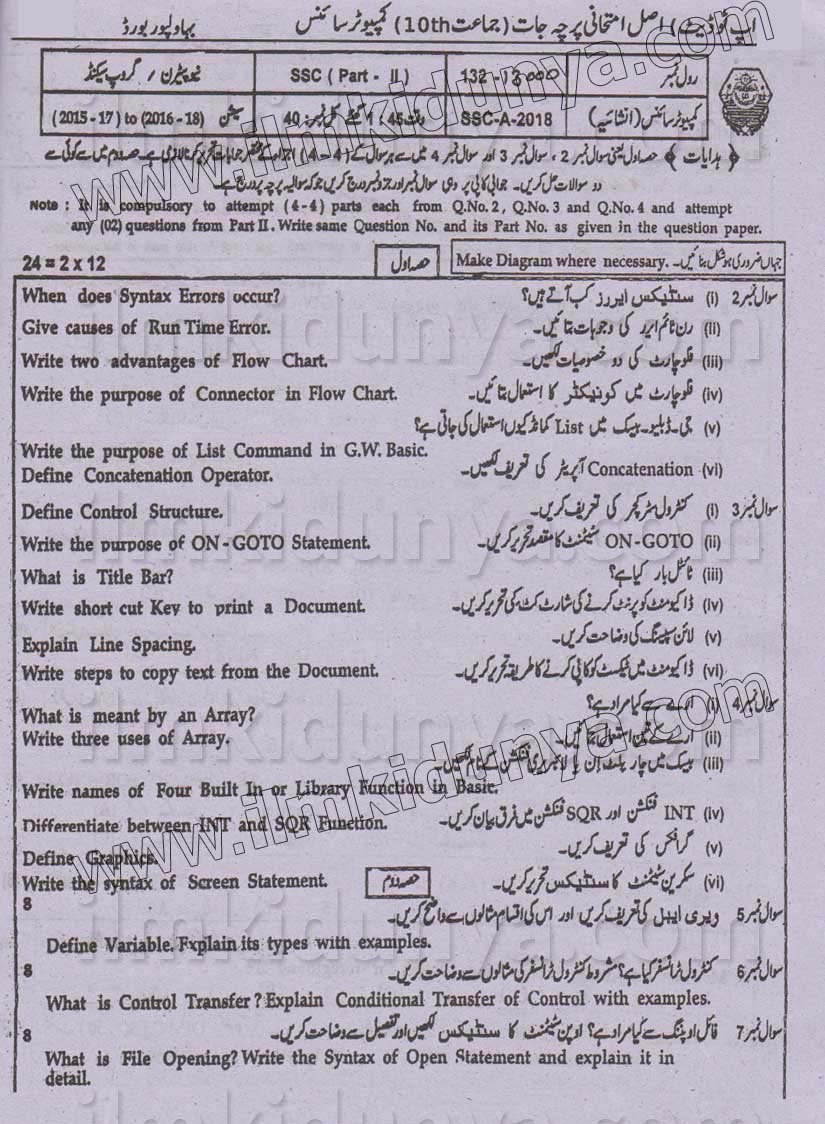 اپ ٹو ڈیٹ) اصل امتحانی پرچہ جات (جماعت 10th) کمپیوٹر سائنس بہاولپور بورڈ
رول نمبر 132 - SSC (Part - II) نیو پیٹرن / گروپ سیکنڈ
کمپیوٹر سائنس (انشائیہ) SSC-A-2018 وقت 1:45 گھنٹے کل نمبر 40 سیشن (2015 - 17) to (2016 - 18)
﴿ ہدایات ﴾ حصہ اول یعنی سوال نمبر 2 ، سوال نمبر 3 اور سوال نمبر 4 میں سے ہر سوال کے (4 - 4) اجزاء کے مختصر جوابات تحریر کرنا لازمی ہے۔ حصہ دوم میں سے کوئی سے
دو سوالات حل کریں۔ جوابی کاپی پر وہی سوال نمبر اور جزو نمبر درج کریں جو کہ سوالیہ پرچہ پر درج ہے۔
Note : It is compulsory to attempt (4-4) parts each from Q.No. 2, Q.No. 3 and Q.No. 4 and attempt
any (02) questions from Part II. Write same Question No. and its Part No. as given in the question paper.
24 = 2 x 12 حصہ اول Make Diagram where necessary. جہاں ضروری ہو شکل بنائیں۔
When does Syntax Errors occur? سوال نمبر 2 (i) سنٹیکس ایررز کب آتے ہیں؟
Give causes of Run Time Error. (ii) رن ٹائم ایرر کی وجوہات بتائیں۔
Write two advantages of Flow Chart. (iii) فلوچارٹ کی دو خصوصیات لکھیں۔
Write the purpose of Connector in Flow Chart. (iv) فلوچارٹ میں کونیکٹر کا استعمال بتائیں۔
(v) جی۔ڈبلیو۔بیسک میں List کمانڈ کیوں استعمال کی جاتی ہے؟
Write the purpose of List Command in G.W. Basic.
Define Concatenation Operator. (vi) Concatenation آپریٹر کی تعریف لکھیں۔
Define Control Structure. سوال نمبر 3 (i) کنٹرول سٹرکچر کی تعریف کریں۔
Write the purpose of ON - GOTO Statement. (ii) ON-GOTO سٹیٹمنٹ کا مقصد تحریر کریں۔
What is Title Bar? (iii) ٹائٹل بار کیا ہے؟
Write short cut Key to print a Document. (iv) ڈاکیومنٹ کو پرنٹ کرنے کی شارٹ کٹ کی تحریر کریں۔
Explain Line Spacing. (v) لائن سپیسنگ کی وضاحت کریں۔
Write steps to copy text from the Document. (vi) ڈاکیومنٹ میں ٹیکسٹ کو کاپی کرنے کا طریقہ تحریر کریں۔
What is meant by an Array? سوال نمبر 4 (i) ارے سے کیا مراد ہے؟
Write three uses of Array. (ii) ارے کے تین استعمال بتائیں۔
(iii) بیسک میں چار بلٹ اِن یا لائبریری فنکشن کے نام لکھیں۔
Write names of Four Built In or Library Function in Basic.
Differentiate between INT and SQR Function. (iv) INT فنکشن اور SQR فنکشن میں فرق بیان کریں۔
Define Graphics. (v) گرافکس کی تعریف کریں۔
Write the syntax of Screen Statement. حصہ دوم (vi) سکرین سٹیٹمنٹ کا سنٹیکس تحریر کریں۔
8 سوال نمبر 5 ویری ایبل کی تعریف کریں اور اس کی اقسام مثالوں سے واضح کریں۔
Define Variable. Explain its types with examples.
8 سوال نمبر 6 کنٹرول ٹرانسفر کیا ہے؟ مشروط کنٹرول ٹرانسفر کی مثالوں سے وضاحت کریں۔
What is Control Transfer ? Explain Conditional Transfer of Control with examples.
8 سوال نمبر 7 فائل اوپننگ سے کیا مراد ہے؟ اوپن سٹیٹمنٹ کا سنٹیکس لکھیں اور تفصیل سے وضاحت کریں۔
What is File Opening? Write the Syntax of Open Statement and explain it in
detail.
www.ilmkidunya.com
www.ilmkidunya.com